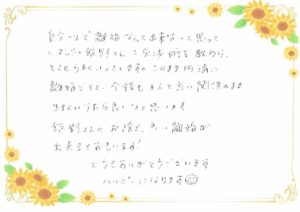 自分一人で離婚なんて出来ないと思って
いましたが飯野さんに交渉術を教わり、
とてもうまくいっています。このまま円満に
離婚をして、今後も主人と良い関係のまま
生きていけたら良いなと思います。
飯野さんのお陰で、良い離婚が
出来そうで
どうもありがとうございます
ハッピーになります